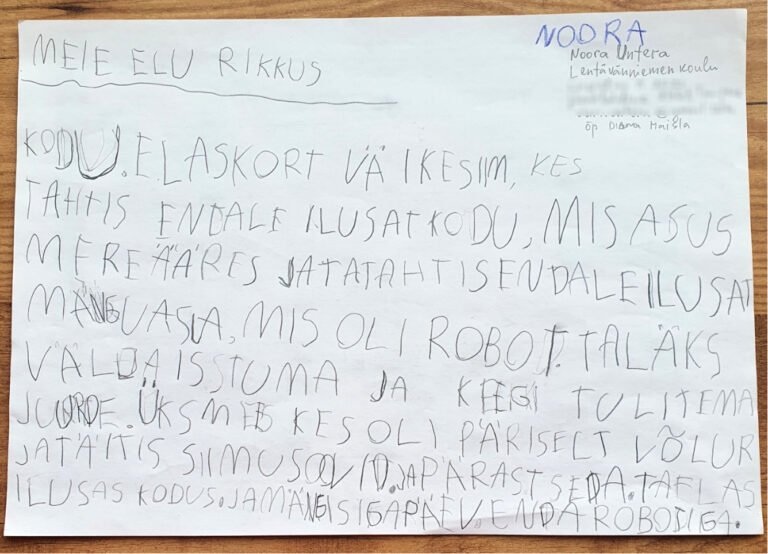 NOORA
Noora Untera
Lentävänniemen koulu
õp Diana Maisla
MEIE ELU RIKKUS
KODU. ELAS KORT VÄIKE SIIM, KES
TAHTIS ENDALE ILUSAT KODU, MIS ASUS
MERE ÄÄRES JA TA TAHTIS ENDALE ILUSAT
MÄNGUASJA, MIS OLI ROBOT. TA LÄKS
VÄLJA ISSTUMA JA KEEGI TULI TEMA
JUURDE. ÜKS MEES KES OLI PÄRISELT VÕLUR
JA TÄITIS SIIMU SOOVID. JA PÄRAST SEDA. TA ELAS
ILUSAS KODUS. JA MÄNGIS IGAPÄEV. ENDA ROBODIGA.